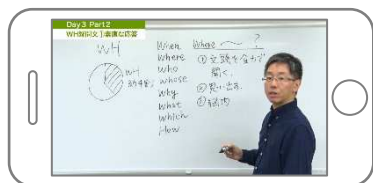 Day 3 Part 2
WH疑問文①:素直な応答
WH
WH
When
Where
Who
whose
Why
what
which
How
Where 〜 ?
①文頭を全力で
聞く。